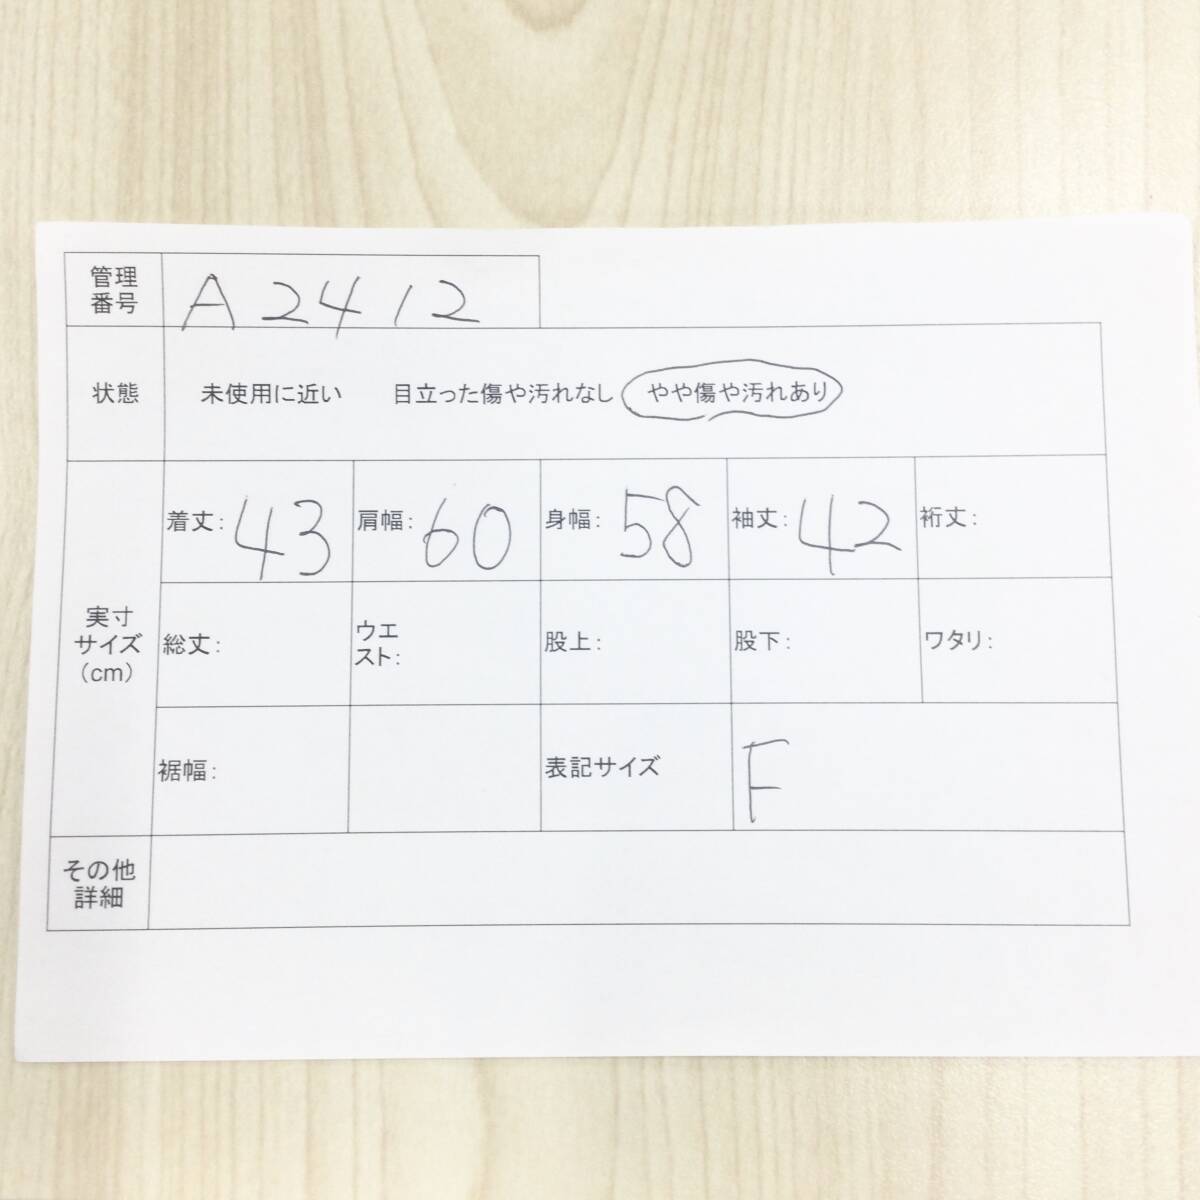 管理
番号
A2412
状態
未使用に近い 目立った傷や汚れなし やや傷や汚れあり
実寸
サイズ
(cm)
着丈: 43 肩幅: 60 身幅: 58 袖丈: 42 裄丈:
総丈: ウエ
スト: 股上: 股下: ワタリ:
裾幅: 表記サイズ F
その他
詳細